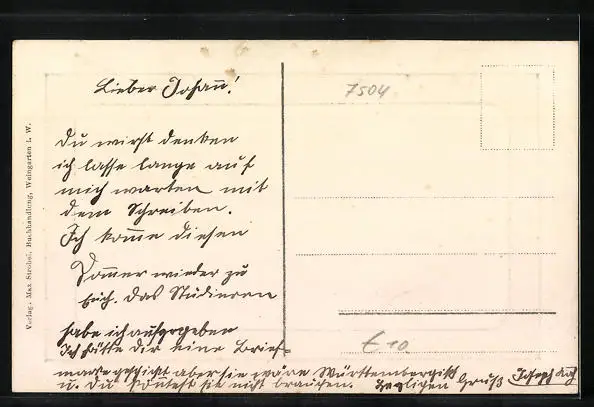 Lieber Johann!
Du wirst denken
ich lasse lange auf
mich warten mit
dem Schreiben.
Ich komme diesen
Sommer wieder zu
Euch. Das Studieren
habe ich aufgegeben
Ich hätte dir eine Brief-
marke geschickt aber sie wäre Württembergisch
u. Du könntest sie nicht brauchen. Herzlichen Gruß Joseph
7504
€ 10.
Verlag: Max Strobel, Buchhandlung, Weingarten i. W.